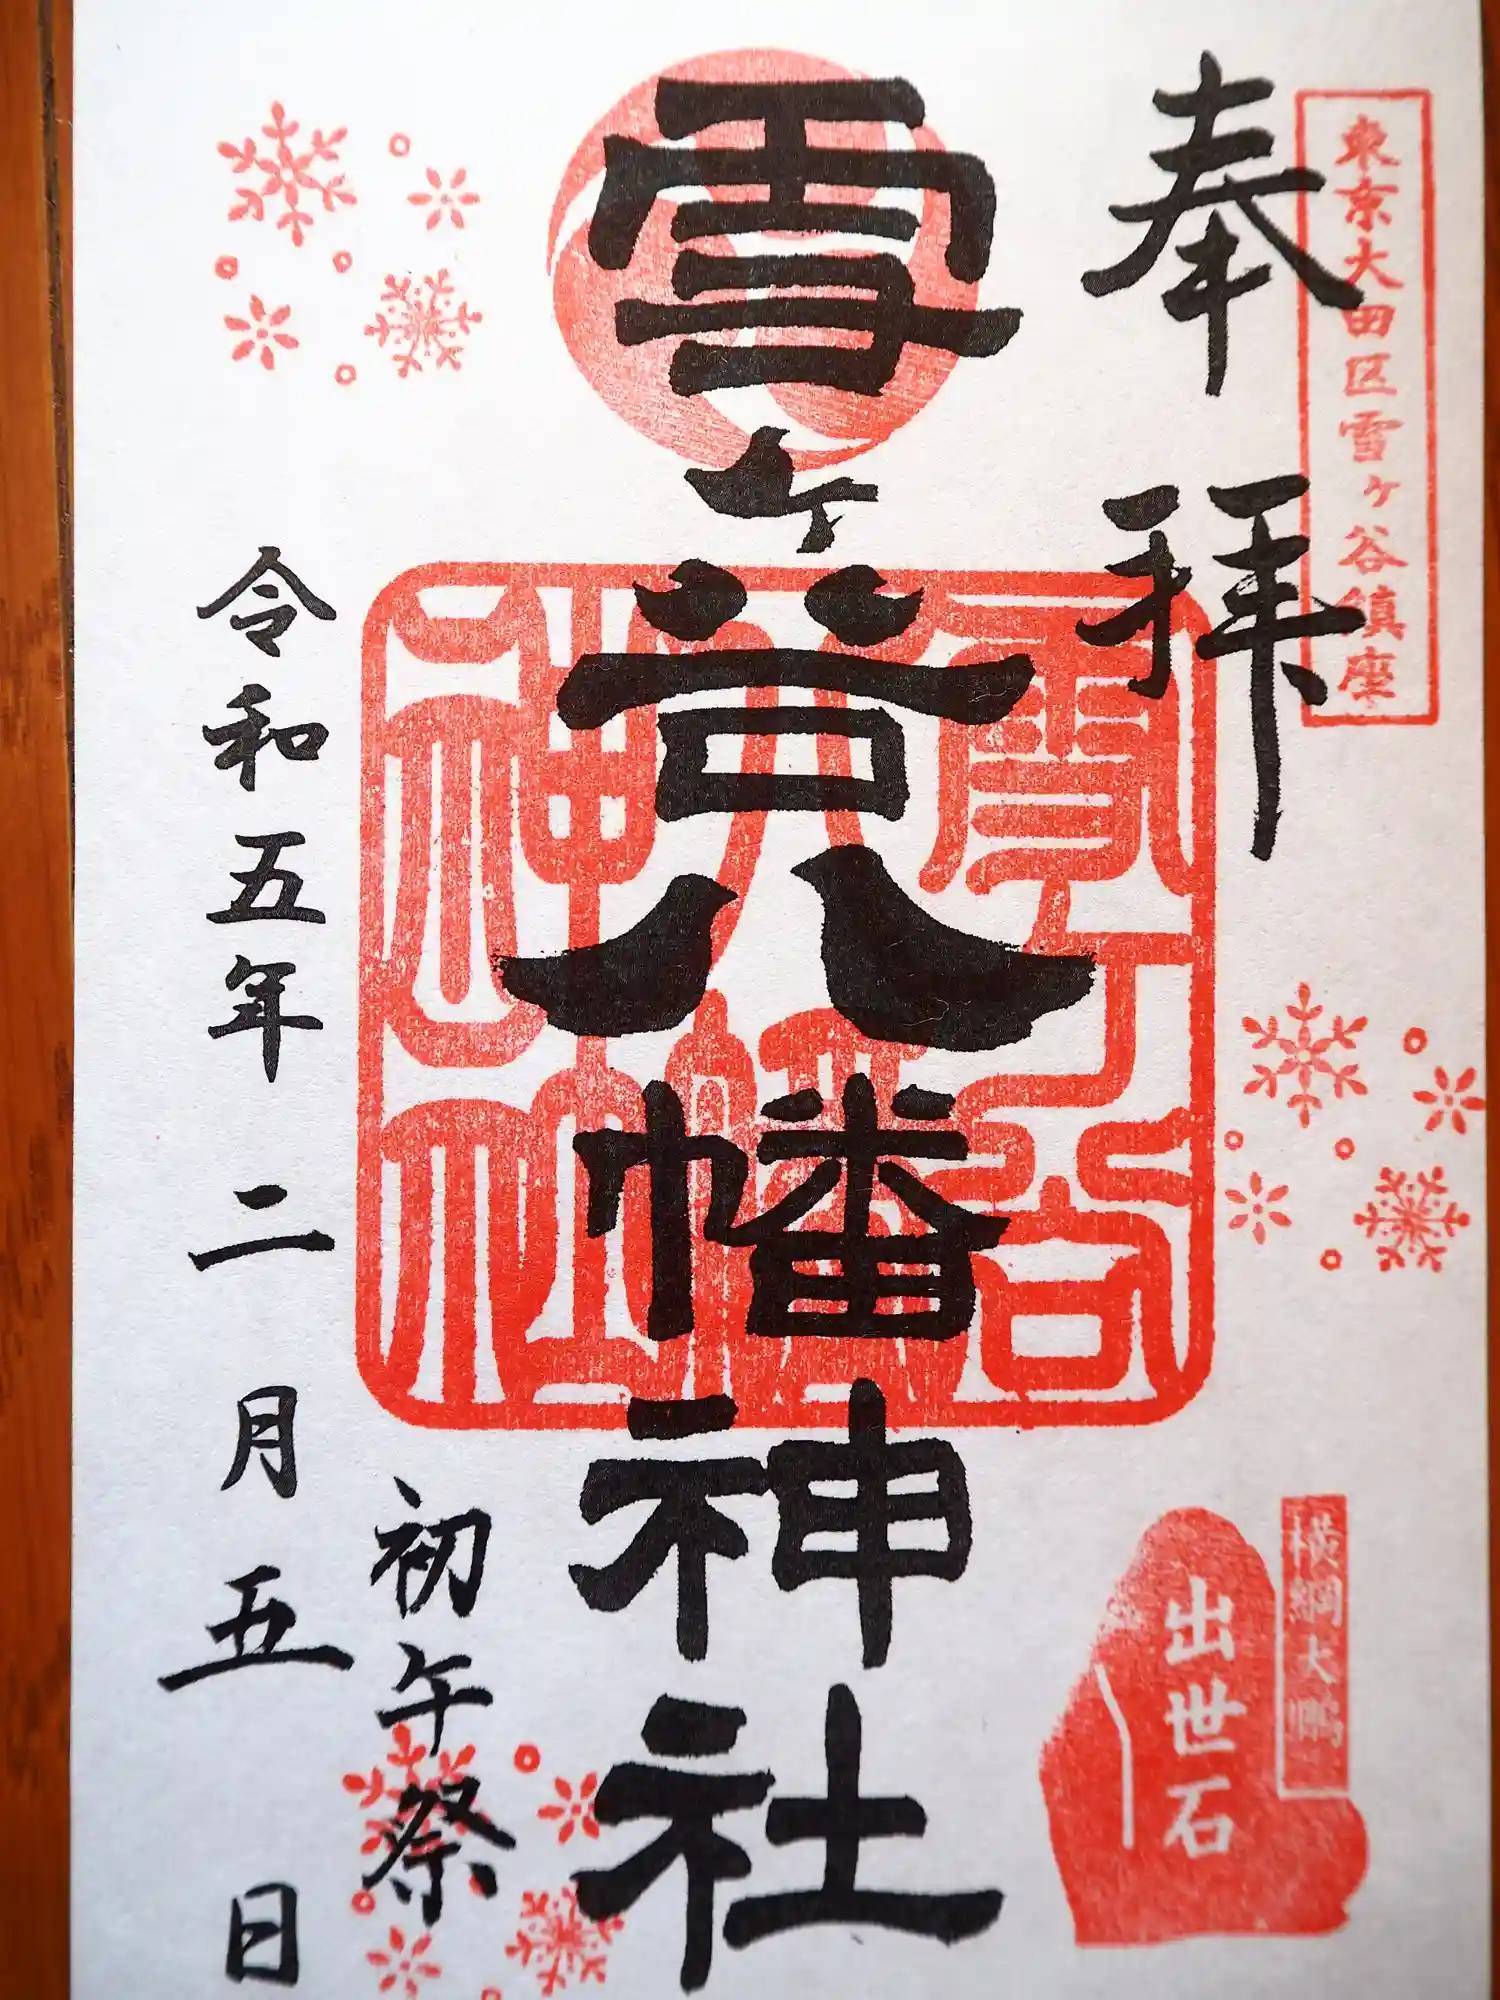 東京大田区雪ヶ谷鎮座
奉拝
横綱大鵬
出世石
雪ヶ谷八幡神社
雪ヶ谷
八幡
神社
初午祭
令和五年二月五日